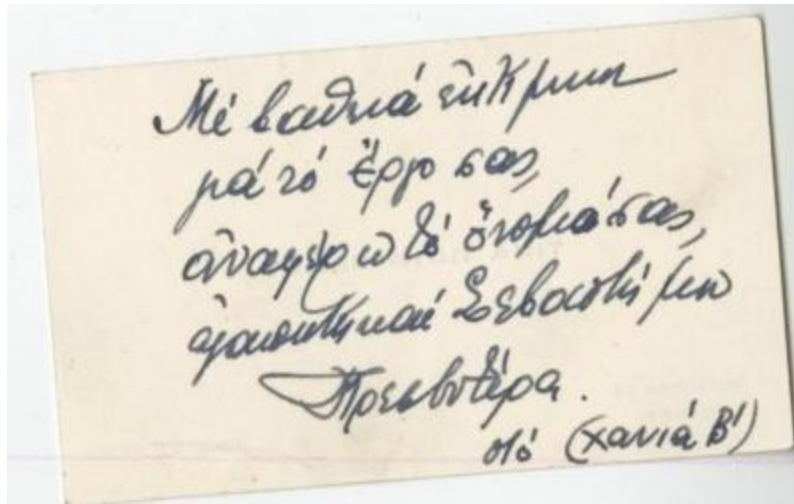 Μέ βαθειά ἐκτίμηση
γιά τό ἔργο σας,
ἀναφέρω τό ὄνομά σας,
ἀγαπητή καί Σεβαστή μου
Πρεσβυτέρα.
στό (Χανιά Β')